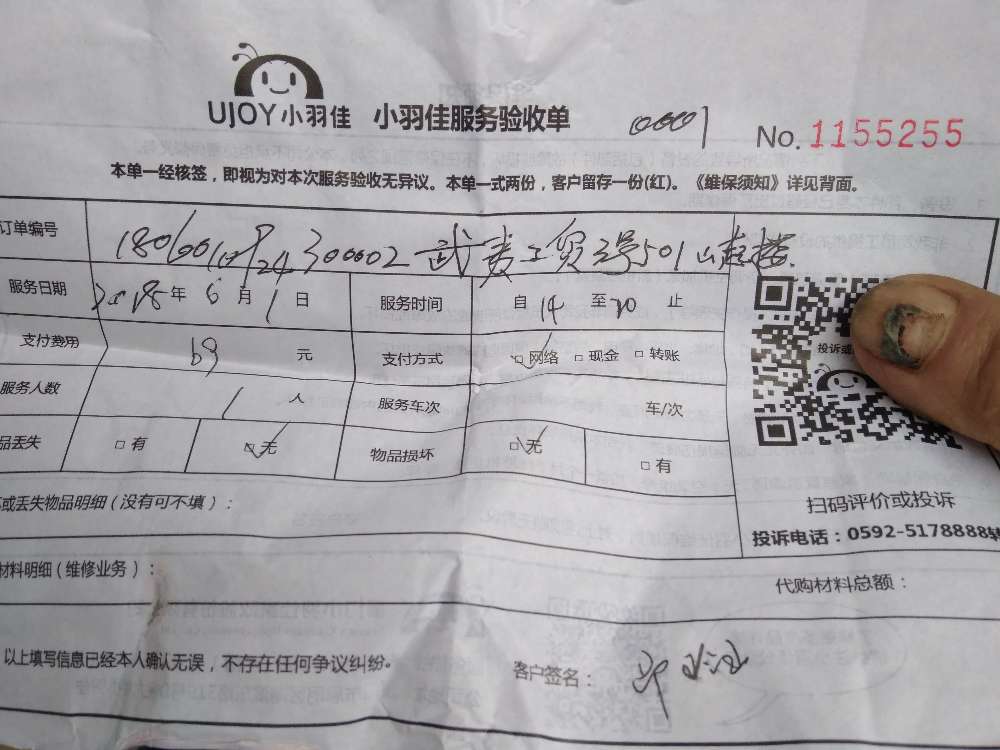 UJOY小羽佳 小羽佳服务验收单 No.1155255
本单一经核签，即视为对本次服务验收无异议。本单一式两份，客户留存一份(红)。《维保须知》详见背面。
订单编号 300002 工贸 号501
服务日期 2018年6月1日 服务时间 自14至20止
支付费用 69元 支付方式 □网络 □现金 □转账
服务人数 1人 服务车次 车/次
品丢失 □有 □无 物品损坏 □无 □有
投诉
扫码评价或投诉
或丢失物品明细（没有可不填）：
投诉电话：0592-5178888转
材料明细（维修业务）：
代购材料总额：
以上填写信息已经本人确认无误，不存在任何争议纠纷。 客户签名：